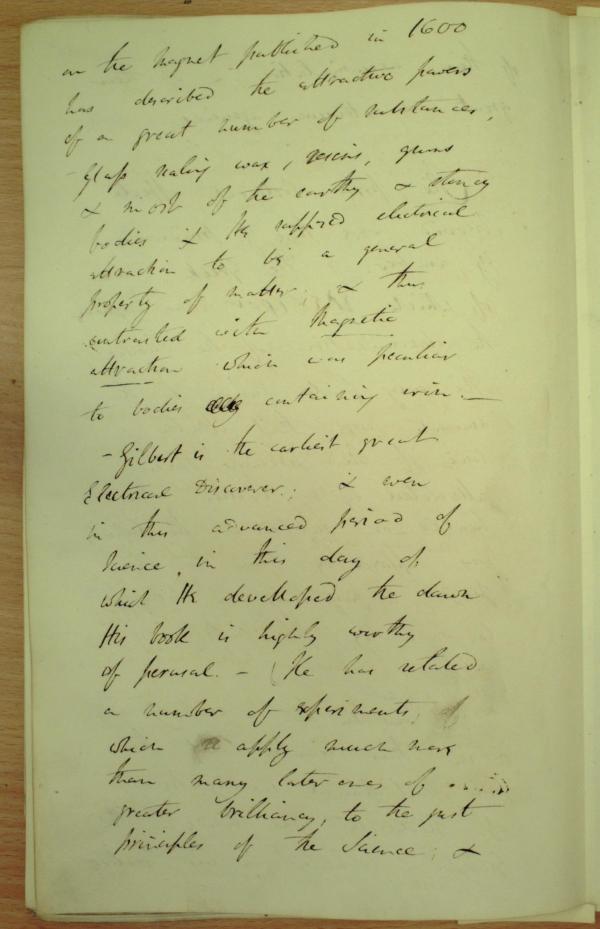 on the Magnet published in 1600
has described the attractive powers
of a great number of substances,
Glass sealing wax, resins, gums
& most of the earthy & stony
bodies & He supposed electrical
attraction to be a general
property of matter. & thus
contrasted with Magnetic
attraction which was peculiar
to bodies containing iron. —
- Gilbert is the earliest great
Electrical Discoverer; & even
in this advanced period of
Science, in this day of
which He developed the dawn
His book is highly worthy
of perusal. - (He has related
a number of experiments, of
which apply much more
than many later ones of
greater brilliancy, to the just
principles of the Science; &